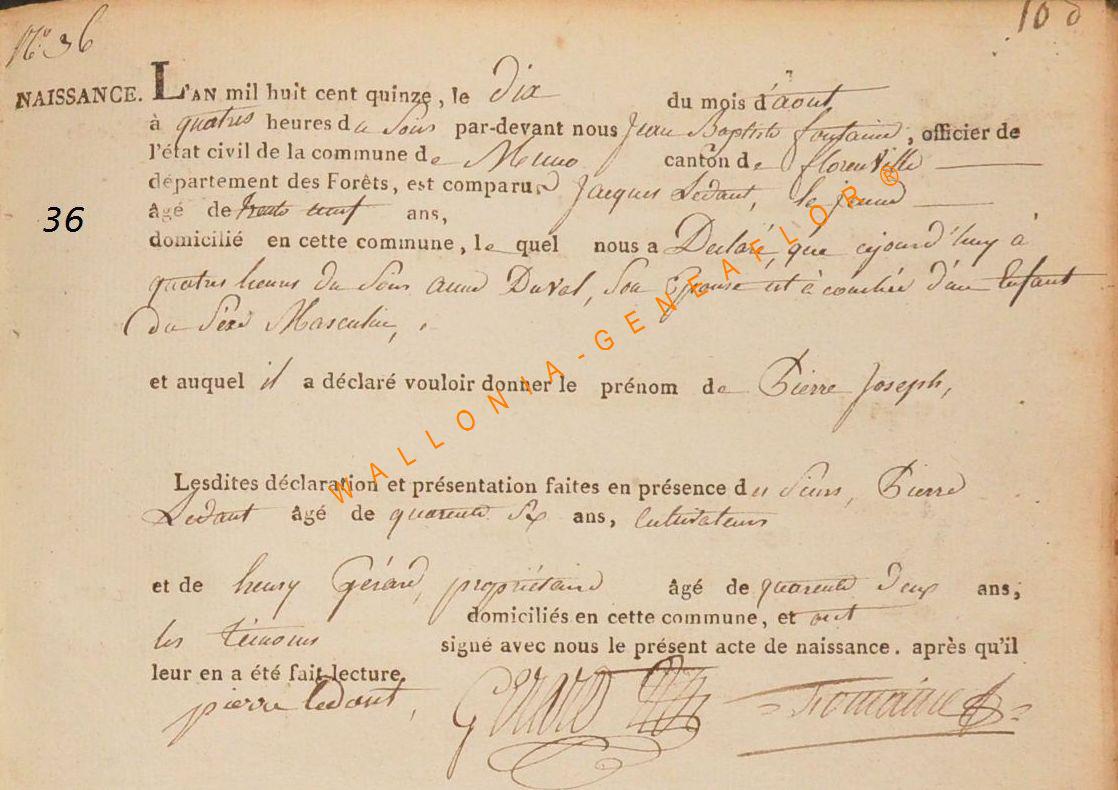 N.º 36
10 d
NAISSANCE. L'AN mil huit cent quinze, le dix du mois d'aout
à quatres heures du Soir par-devant nous Jean Baptiste fontaine, officier de
l'état civil de la commune de Muno canton de florenville
département des Forêts, est comparu Jacques Ledant, le jeune
36
âgé de trente neuf ans,
domicilié en cette commune, le quel nous a Declaré, que cejourd'huy à
quatres heures du Soir anne Duval, Son Epouse est à couchée d'un Enfant
du Sexe Masculin,
et auquel il a déclaré vouloir donner le prénom de Pierre Joseph,
Lesdites déclaration et présentation faites en présence des Sieurs, Pierre
Ledant âgé de quarente Six ans, Cultivateurs
et de henry Gérard, propriétaire âgé de quarente deux ans,
domiciliés en cette commune, et ont
les témoins signé avec nous le présent acte de naissance. après qu'il
leur en a été fait lecture.
pierre ledant, Gerard fontaine
WALLONIA-GENEAFLOR ®